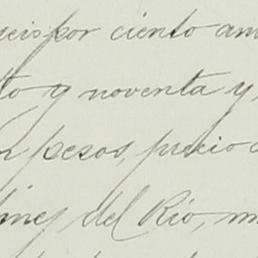 seis por ciento an
to y noventa y
n pesos, precio
inez del Rio, m